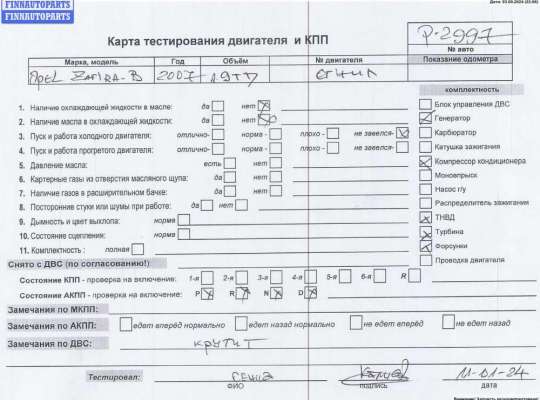 FINNAUTOPARTS
FINNAUTOPARTS
Карта тестирования двигателя и КПП
P-2997
№ авто
Марка, модель Год Объём № двигателя Показание одометра
Opel Zafira-B 2007 1.9TD
комплектность
1. Наличие охлаждающей жидкости в масле: да нет
2. Наличие масла в охлаждающей жидкости: да нет
3. Пуск и работа холодного двигателя: отлично- норма - плохо - не завелся-
4. Пуск и работа прогретого двигателя: отлично- норма - плохо - не завелся-
5. Давление масла: есть нет
6. Картерные газы из отверстия масляного щупа: да нет
7. Наличие газов в расширительном бачке: да нет
8. Посторонние стуки или шумы при работе: да нет
9. Дымность и цвет выхлопа: норма
10. Состояние сцепления: норма
11. Комплектность : полная
Блок управления ДВС
Генератор
Карбюратор
Катушка зажигания
Компрессор кондиционера
Моновпрыск
Насос г/у
Распределитель зажигания
ТНВД
Турбина
Форсунки
Проводка двигателя
Снято с ДВС (по согласованию!)
Состояние КПП - проверка на включение: 1-я 2-я 3-я 4-я 5-я 6-я R
Состояние АКПП - проверка на включение: P R N D
Замечания по МКПП:
Замечания по АКПП: едет вперёд нормально едет назад нормально не едет вперёд не едет назад
Замечания по ДВС: крутит
Тестировал: 11-01-24
ФИО подпись дата